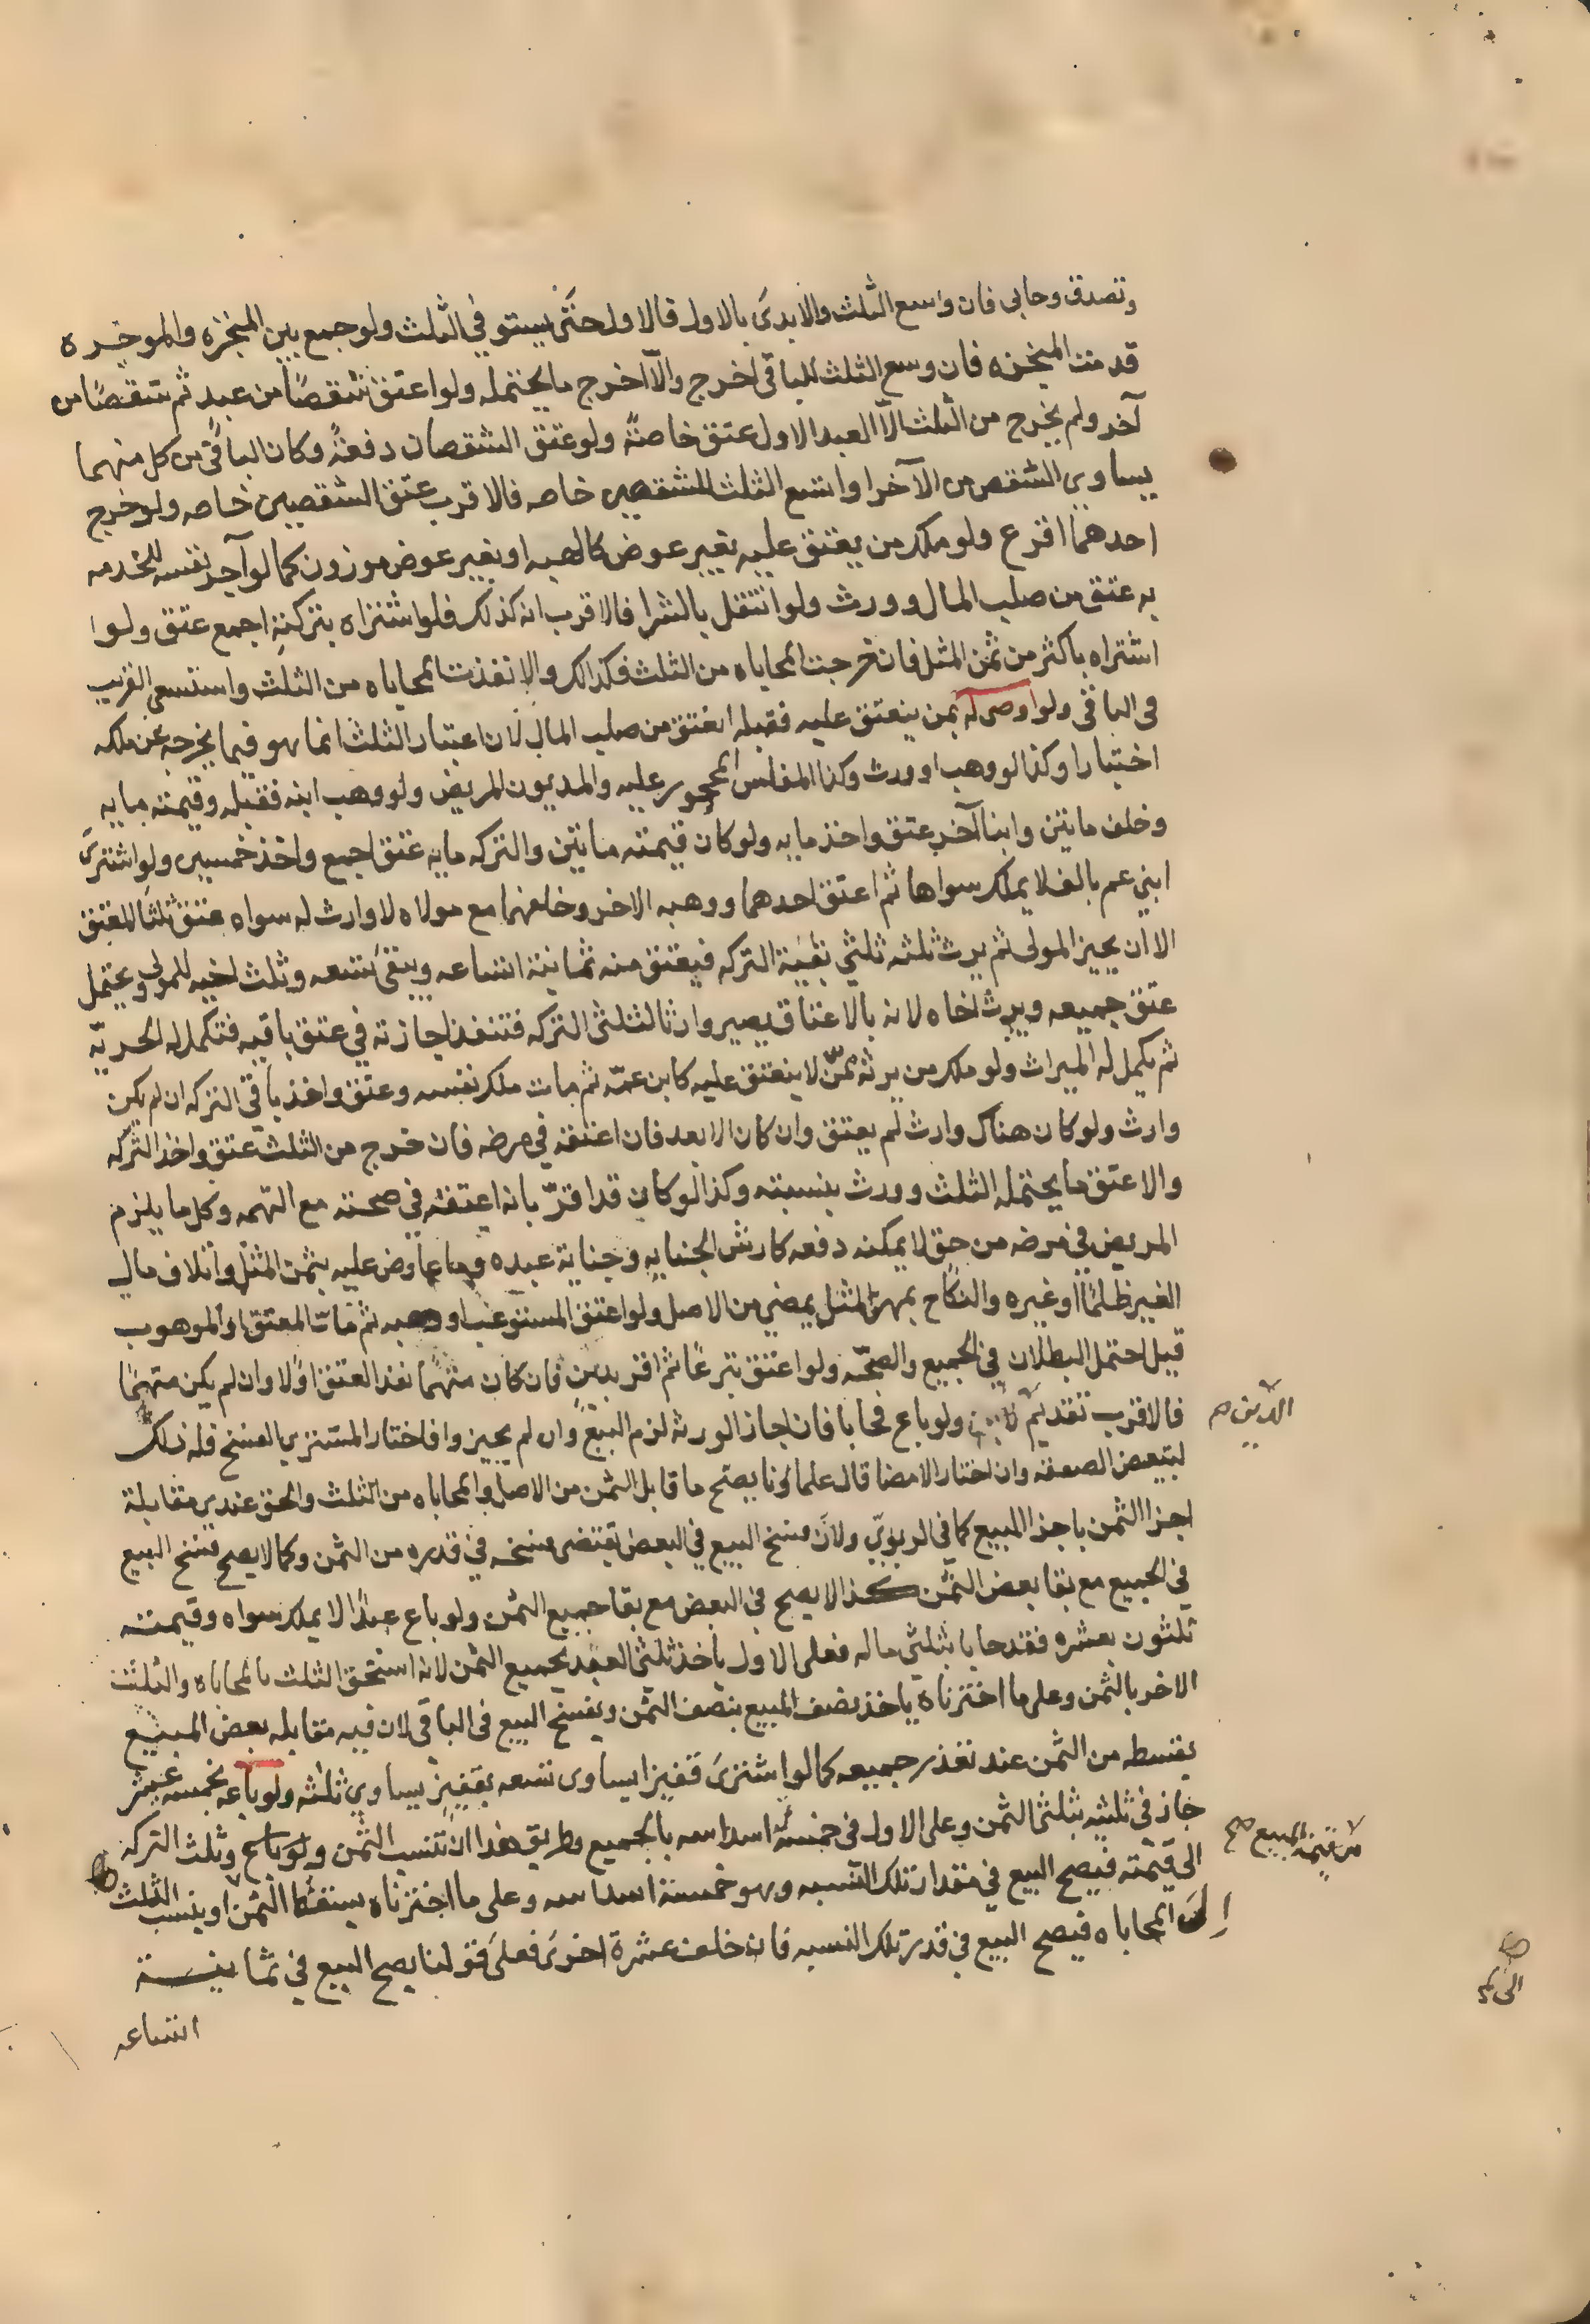 وتصدق وحابى فان واسع الثلث والا بدئ بالاول فالاول حتى يستوفي الثلث ولو جمع بين المنجزه والموخره
قدمت المنجزه فان وسع الثلث للباقي اخرج والا اخرج ما يحتمله ولو اعتق شقصا من عبد ثم شقصا من
آخر ولم يخرج من الثلث الا العبد الاول عتق خاصة ولو عتق الشقصان دفعة وكان الباقي من كل منهما
يساوي الشقص من الآخر او اتسع الثلث للشقصين خاصه فالاقرب عتق الشقصين خاصه ولو خرج
احدهما اقرع ولو ملك من يعتق عليه بغير عوض كالهبه او بغير عوض موزون كما لو آجر نفسه للخدمه
به عتق من صلب المال وورث ولو انتقل بالشرا فالاقرب انه كذلك فلو اشتراه بتركته اجمع عتق ولو ا
اشتراه باكثر من ثمن المثل فان خرجت المحاباه من الثلث فكذالك والا نفذت المحاباه من الثلث واستسعى القريب
في الباقي ولو اوصي له بمن ينعتق عليه فقبله انعتق من صلب المال لان اعتبار الثلث انما هو فيما يخرجه عن ملكه
اختيارا وكذا لو وهب او ورث وكذا المفلس المحجور عليه والمديون المريض ولو وهب ابنه فقبله وقيمته مايه
وخلف مايتين وابنا آخر عتق واخذ مايه ولو كان قيمته مايتين والتركه مايه عتق اجمع واخذ خمسين ولو اشترى
ابني عم بالف لا يملك سواها ثم اعتق احدهما ووهبه الاخر وخلفهما مع مولاه لا وارث له سواه عتق ثلثا المعتق
الا ان يجيز المولى ثم يرث ثلثه ثلثي بقية التركه فيعتق منه ثمانية اتساعه ويبقى تسعه وثلث اخيه للمولى ويحتمل
عتق جميعه ويرث اخاه لانه بالاعتاق يصير وارثا لثلثي التركه فتنفذ اجازته في عتق باقيه فتكمل له الحرية
ثم يكمل له الميراث ولو ملك من يرثه ممن لا ينعتق عليه كابن عمه ثم مات ملك نفسه وعتق واخذ باقي التركه ان لم يكن
وارث ولو كان هناك وارث لم يعتق وان كان الابعد فان اعتقه في مرضه فان خرج من الثلث عتق واخذ التركه
والا عتق ما يحتمله الثلث وورث بنسبته وكذا لو كان قد اقر بانه اعتقه في صحته مع التهمه وكل ما يلزم
المريض في مرضه من حق لا يمكنه دفعه كارش الجنايه وجناية عبده وما عاوض عليه بثمن المثل واتلاف مال
الغير ظلما او غيره والنكاح بمهر المثل يمضي من الاصل ولو اعتق المستوعب او وهبه ثم مات المعتق او الموهوب
قبل احتمل البطلان في الجميع والصحه ولو اعتق تبرعا ثم اقر بدين فان كان متهما نفذ العتق اولا وان لم يكن متهما
فالاقرب تقديم ولو باع فحابا فان اجاز الورثه لزم البيع وان لم يجيزوا فاختار المشتري الفسخ فله ذلك
الدين صح
لتبعض الصفقه وان اختار الامضا قال علماؤنا يصح ما قابل الثمن من الاصل والمحاباه من الثلث والحق عندي مقابلة
اجزا الثمن باجزا المبيع كما في الربوي ولان فسخ البيع في البعض يقتضي فسخه في قدره من الثمن وكما لا يصح فسخ البيع
في الجميع مع بقا بعض الثمن كذا لا يصح في البعض مع بقا جميع الثمن ولو باع عبدا لا يملك سواه وقيمته
ثلثون بعشره فقد حابا بثلثي ماله فعلى الاول ياخذ ثلثي العبد بجميع الثمن لانه استحق الثلث بالمحاباه والثلث
الاخر بالثمن وعلى ما اخترناه ياخذ نصف المبيع بنصف الثمن ويفسخ البيع في الباقي لان فيه مقابله بعض المبيع
بقسطه من الثمن عند تعذر جميعه كما لو اشترى قفيزا يساوى تسعه بقفيز يساوي ثلثه ولو باعه بخمسه عشر
جاز في ثلثيه بثلثي الثمن وعلى الاول في خمسة اسداسه بالجميع وطريق هذا ان تنسب الثمن وثلث التركه
من قيمة المبيع صح
الى قيمته فيصح البيع في مقدار تلك النسبه وهو خمسة اسداسه وعلى ما اخترناه يسقط الثمن او ينسب الثلث
الى المحاباه فيصح البيع في قدر تلك النسبه فان خلف عشرة اخرى فعلى قولنا يصح البيع في ثمانية
اتساعه